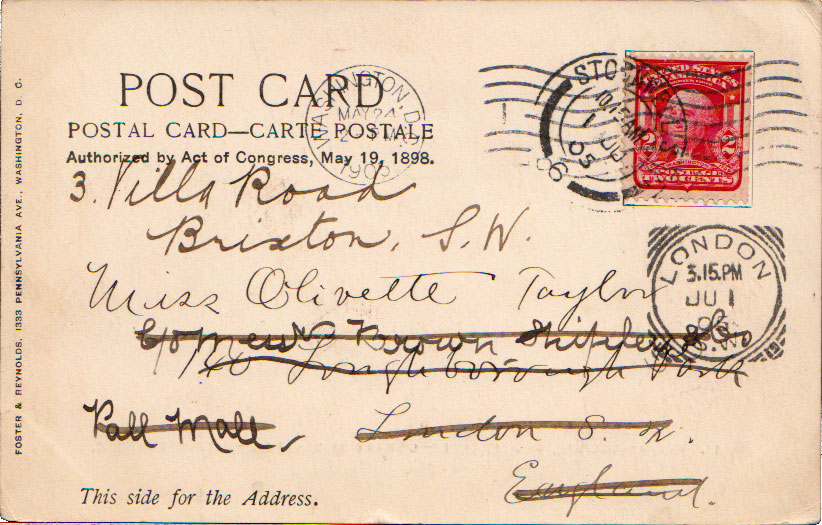 FOSTER & REYNOLDS, 1333 PENNSYLVANIA AVE., WASHINGTON, D. C.
POST CARD
POSTAL CARD—CARTE POSTALE
Authorized by Act of Congress, May 19, 1898.
WASHINGTON, D.
MAY 24
1905
UNITED STATES
2
POSTAGE
TWO CENTS
3. Villa Road
Brixton, S.W.
LONDON
3.15.PM
JU 1
S.W
Miss Olivette Taylor
c/o Messrs Brown Shipley & Co
Loughborough Park
Pall Mall,
London S. W.
England.
This side for the Address.